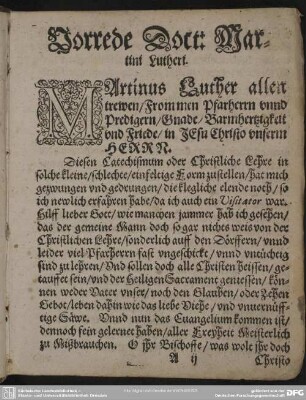 Vorrede Doct: Mar-
tini Lutheri.
MArtinus Luther allen
trewen/Frommen Pfarherrn vnnd
Predigern/Gnade/Barmhertzigkeit
vnd Friede/in JEsu Christo vnserm
HERRN.
Diesen Catechismum oder Christliche Lehre in
solche kleine/schlechte/einfeltige Form zustellen/hat mich
gezwungen vnd gedrungen/die klegliche elende noth/so
ich newlich erfahren habe/da ich auch ein Visitator war.
Hilff lieber Gott/wie manchen jammer hab ich gesehen/
das der gemeine Mann doch so gar nichts weis von der
Christlichen Lehre/sonderlich auff den Dörffern/vnnd
leider viel Pfarherrn fast vngeschickt/vnnd vntüchtig
sind zu lehren/Vnd sollen doch alle Christen heissen/ge-
tauffet sein/vnd der Heiligen Sacrament geniessen/kön-
nen weder Vater vnser/noch den Glauben/oder Zehen
Gebot/leben dahin wie das liebe Viehe/vnd vnuernünff-
tige Säwe. Vnnd nun das Euangelium kommen ist/
dennoch fein gelernet haben/aller Freyheit Meisterlich
zu Mißbrauchen. O jhr Bischoffe/was wolt jhr doch
A ij Christo